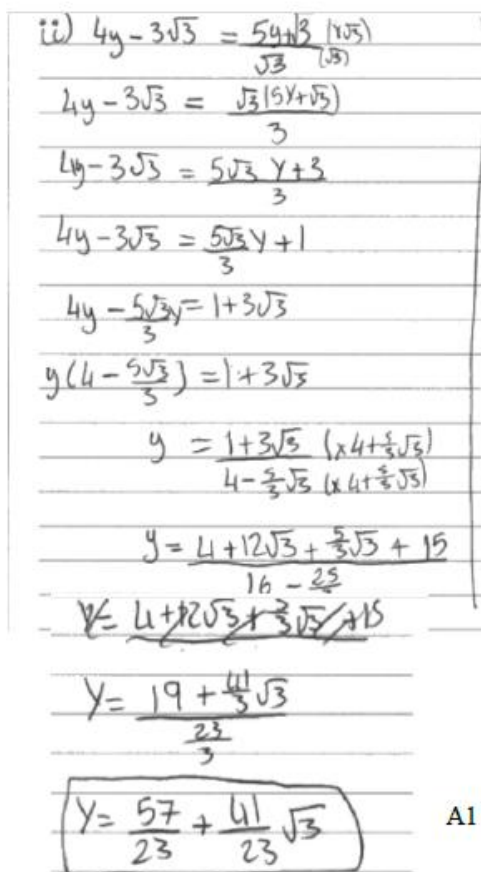 ii) 4y - 3√3 = (5y+√3)/√3 (x√3)/(√3)
4y - 3√3 = √3(5y+√3)/3
4y - 3√3 = (5√3 y + 3)/3
4y - 3√3 = 5√3/3 y + 1
4y - 5√3/3 y = 1 + 3√3
y(4 - 5√3/3) = 1 + 3√3
y = (1 + 3√3)/(4 - 5/3√3) (x4 + 5/3√3)/(x4 + 5/3√3)
y = (4 + 12√3 + 5/3√3 + 15)/(16 - 25/3)
y = 4 + 12√3 + 5/3√3 + 15
y = (19 + 41/3√3)/(23/3)
y = 57/23 + 41/23 √3 A1